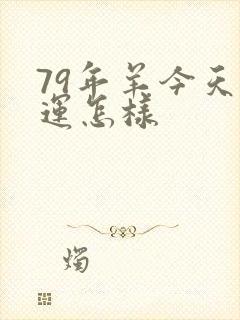 79年羊今天
運怎樣
燭